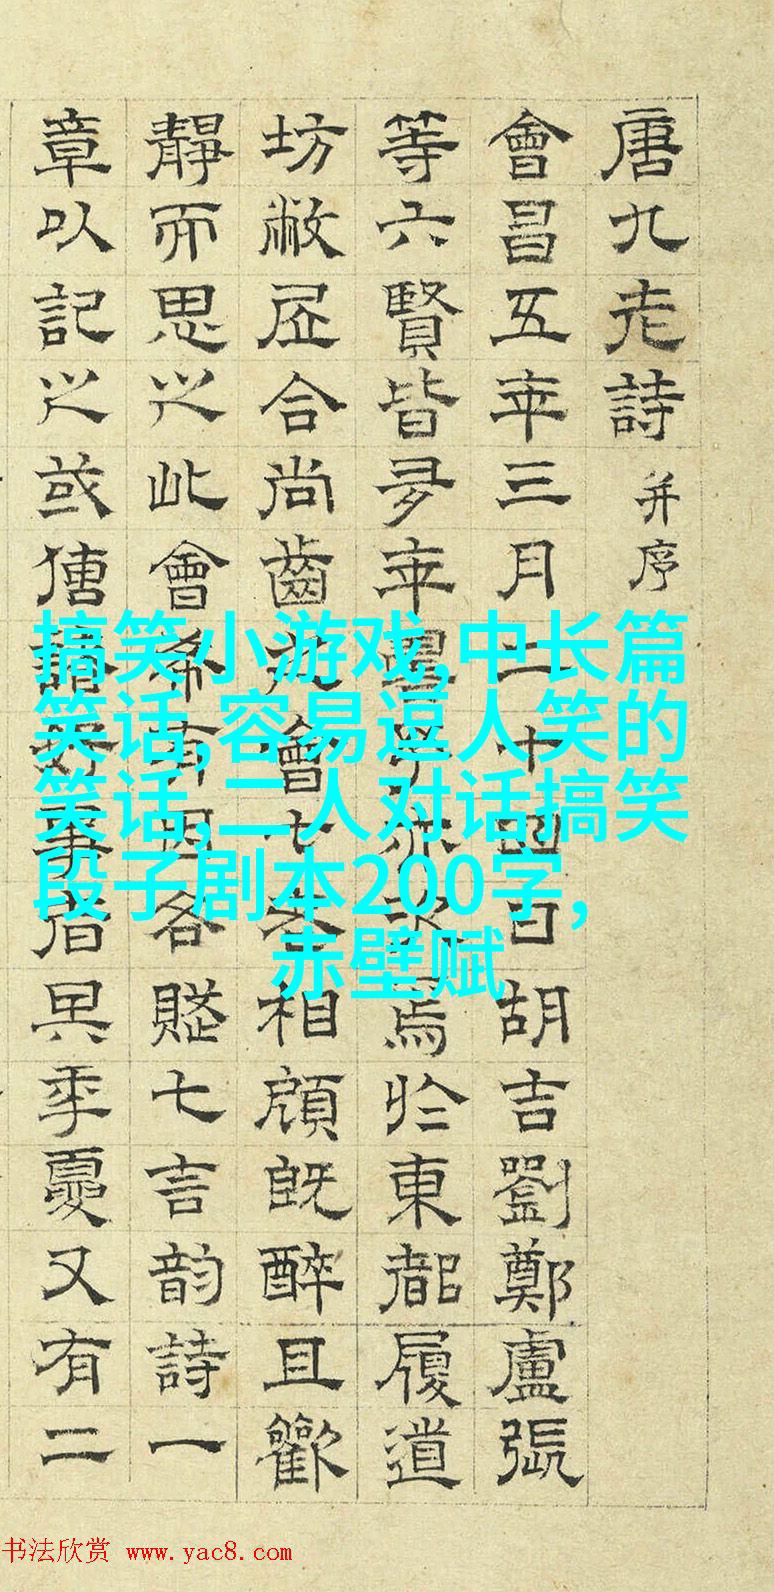 唐九老詩 并序
會昌五年三月二十四日胡吉劉鄭盧張
等六賢皆多年壽予亦次焉於東都履道
坊敝居合尚齒之會七老相顧既醉且歡
靜而思之此會希有因各賦七言韻詩一
章以記之或傳諸好事者其年夏又有二
搞笑小游戏,中长篇
笑话,容易逗人笑的
笑话,二人对话搞笑
段子剧本200字,
赤壁赋
书法欣赏 www.yac8.com